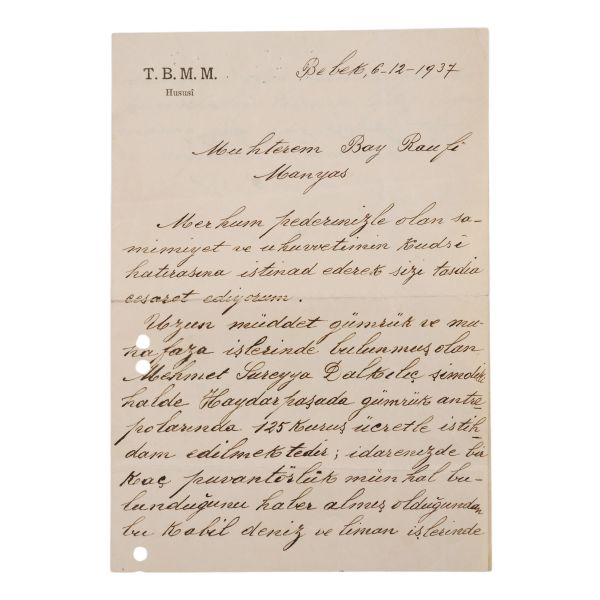 T. B. M. M.
Hususî
Bebek, 6-12-1937
Muhterem Bay Raufi
Manyas
Merhum pederinizle olan sa-
mimiyet ve uhuvvetimin kudsî
hatırasına istinad ederek sizi tasdia
cesaret ediyorum.
Uzun müddet gümrük ve mu-
hafaza işlerinde bulunmuş olan
Mehmet Süreyya Dalkılıç şimdiki
halde Haydarpaşada gümrük antre-
polarında 125 kuruş ücretle istih-
dam edilmektedir; idarenizde bir
kaç puvantörlük münhal bu-
lunduğunu haber almış olduğundan
bu kabil deniz ve liman işlerinde